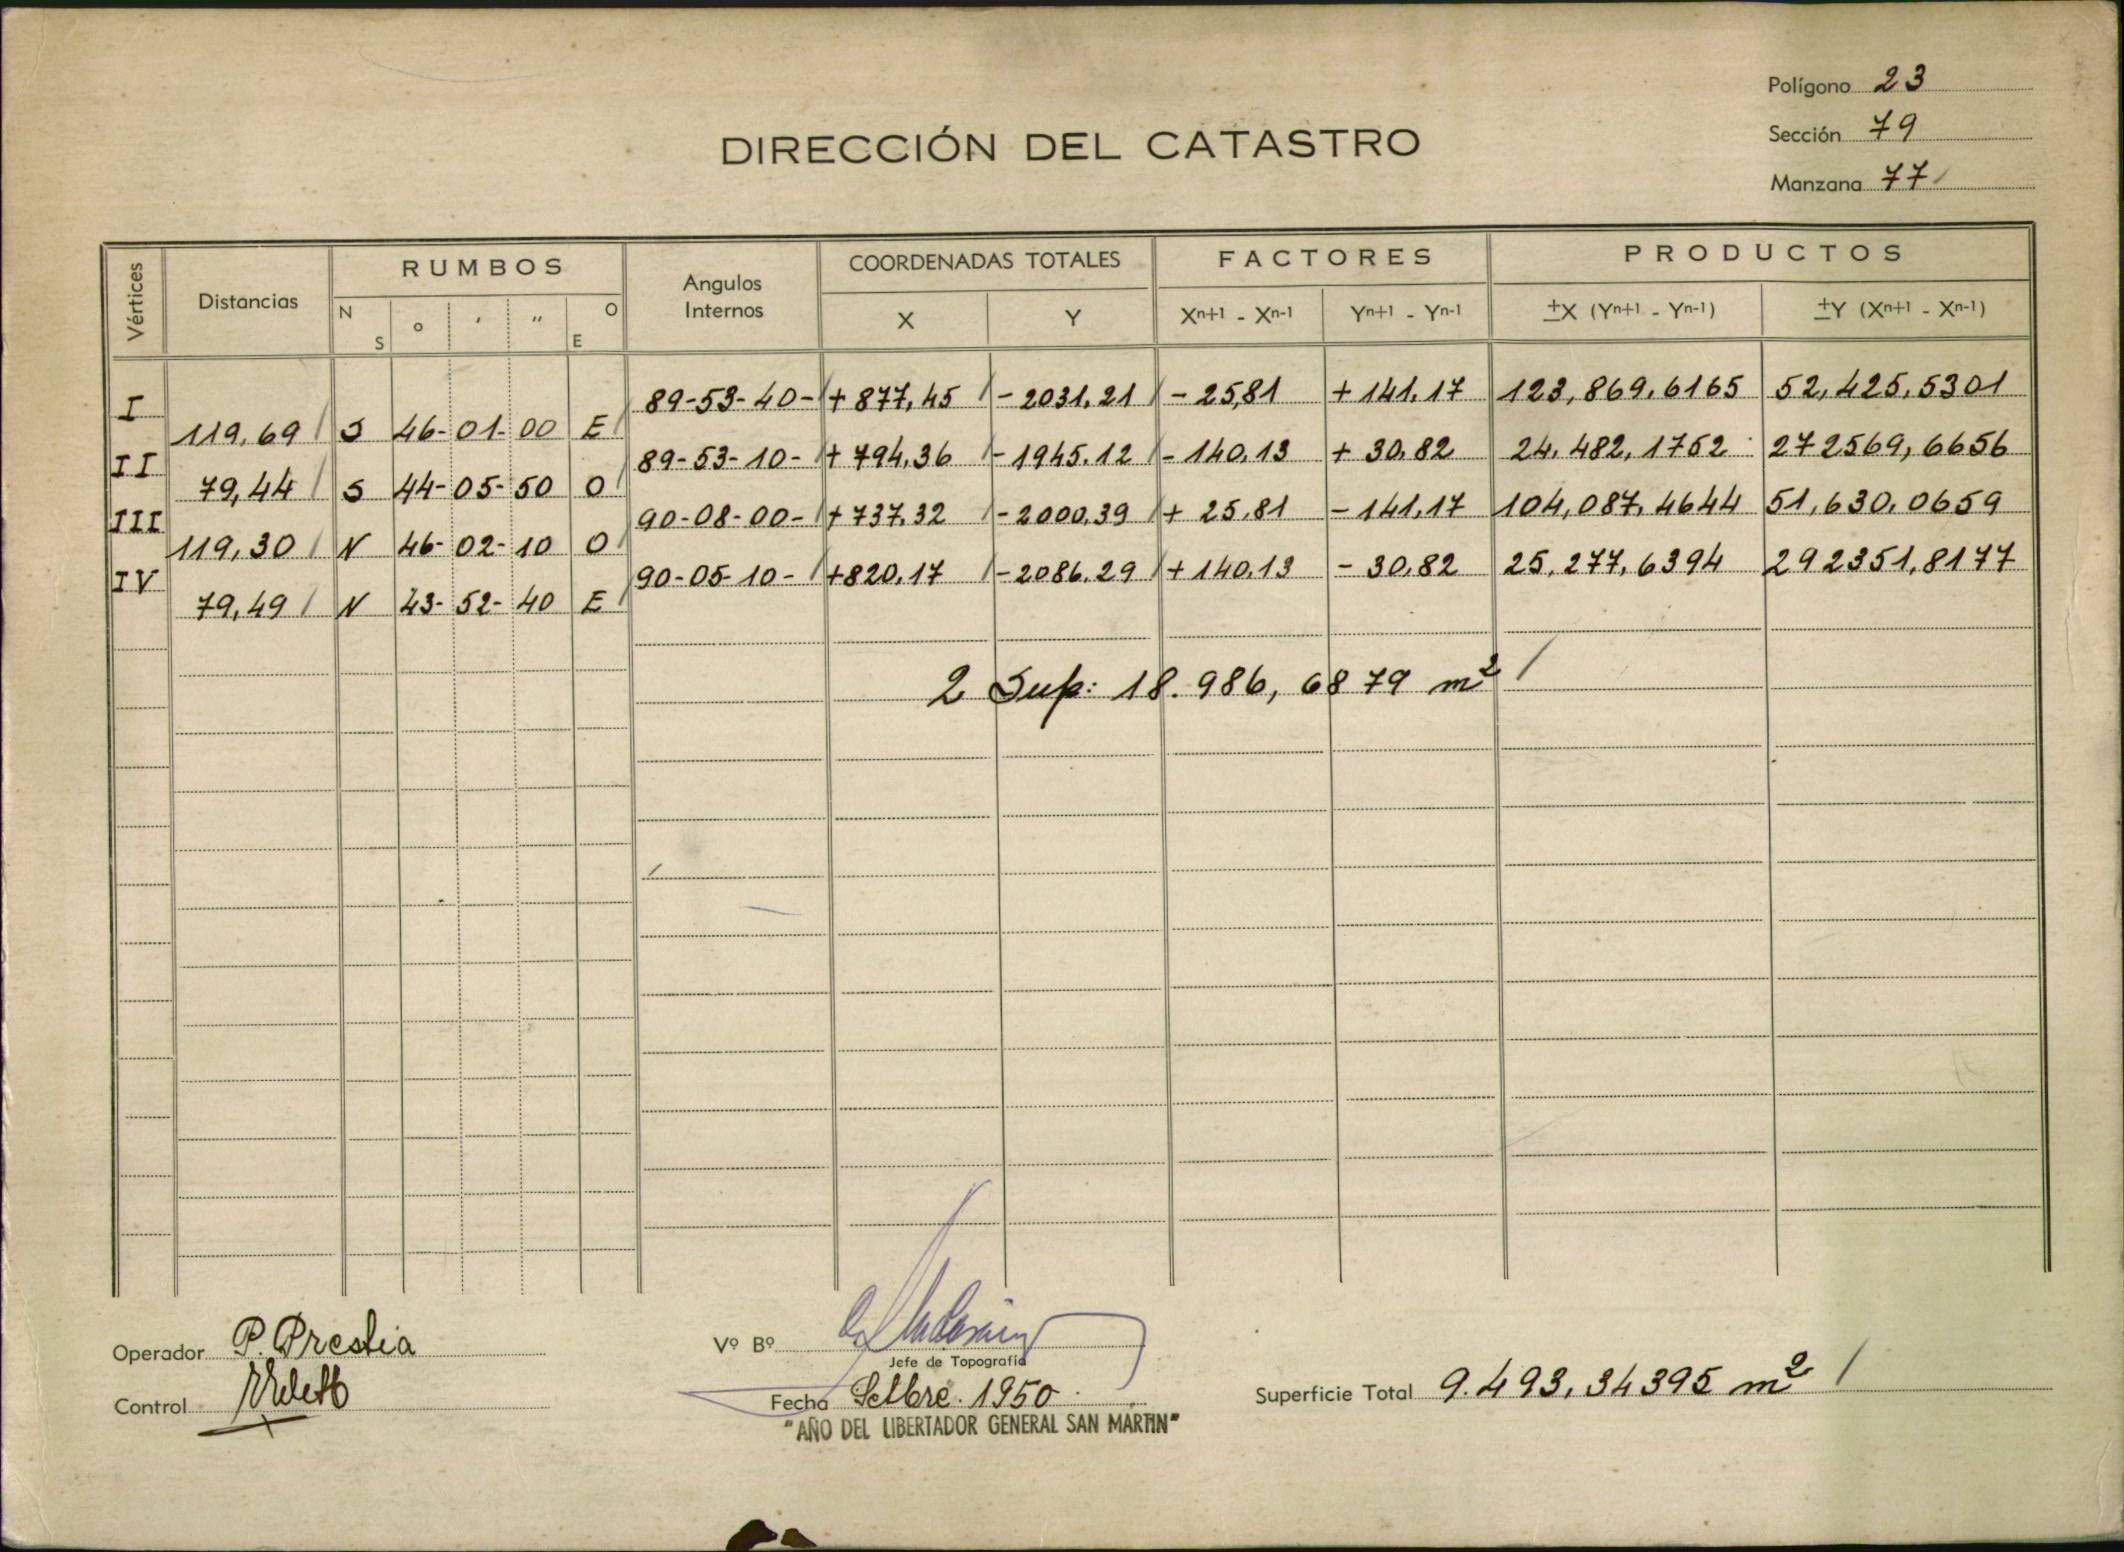 Polígono 23
DIRECCIÓN DEL CATASTRO
Sección 79
Manzana 77
Vértices Distancias RUMBOS Angulos Internos COORDENADAS TOTALES FACTORES PRODUCTOS
N S o ' " O E X Y Xn+1 - Xn-1 Yn+1 - Yn-1 ±X (Yn+1 - Yn-1) ±Y (Xn+1 - Xn-1)
I 89-53-40- +877,45 -2031.21 -25,81 +141.17 123,869,6165 52,425,5301
119.69 S 46-01-00 E
II 89-53-10- +794,36 -1945.12 -140,13 +30,82 24,482,1752 272569,6656
79,44 S 44-05-50 O
III 90-08-00- +737,32 -2000,39 +25,81 -141,17 104,087,4644 51,630,0659
119,30 N 46-02-10 O
IV 90-05-10- +820,17 -2086.29 +140,13 -30,82 25,277,6394 292351,8177
79,49 N 43-52-40 E
2 Sup: 18.986,6879 m²
Operador P. Prestia
Vº Bº
Jefe de Topografía
Control
Fecha Setbre. 1950.
Superficie Total 9.493,34395 m²
"AÑO DEL LIBERTADOR GENERAL SAN MARTIN"